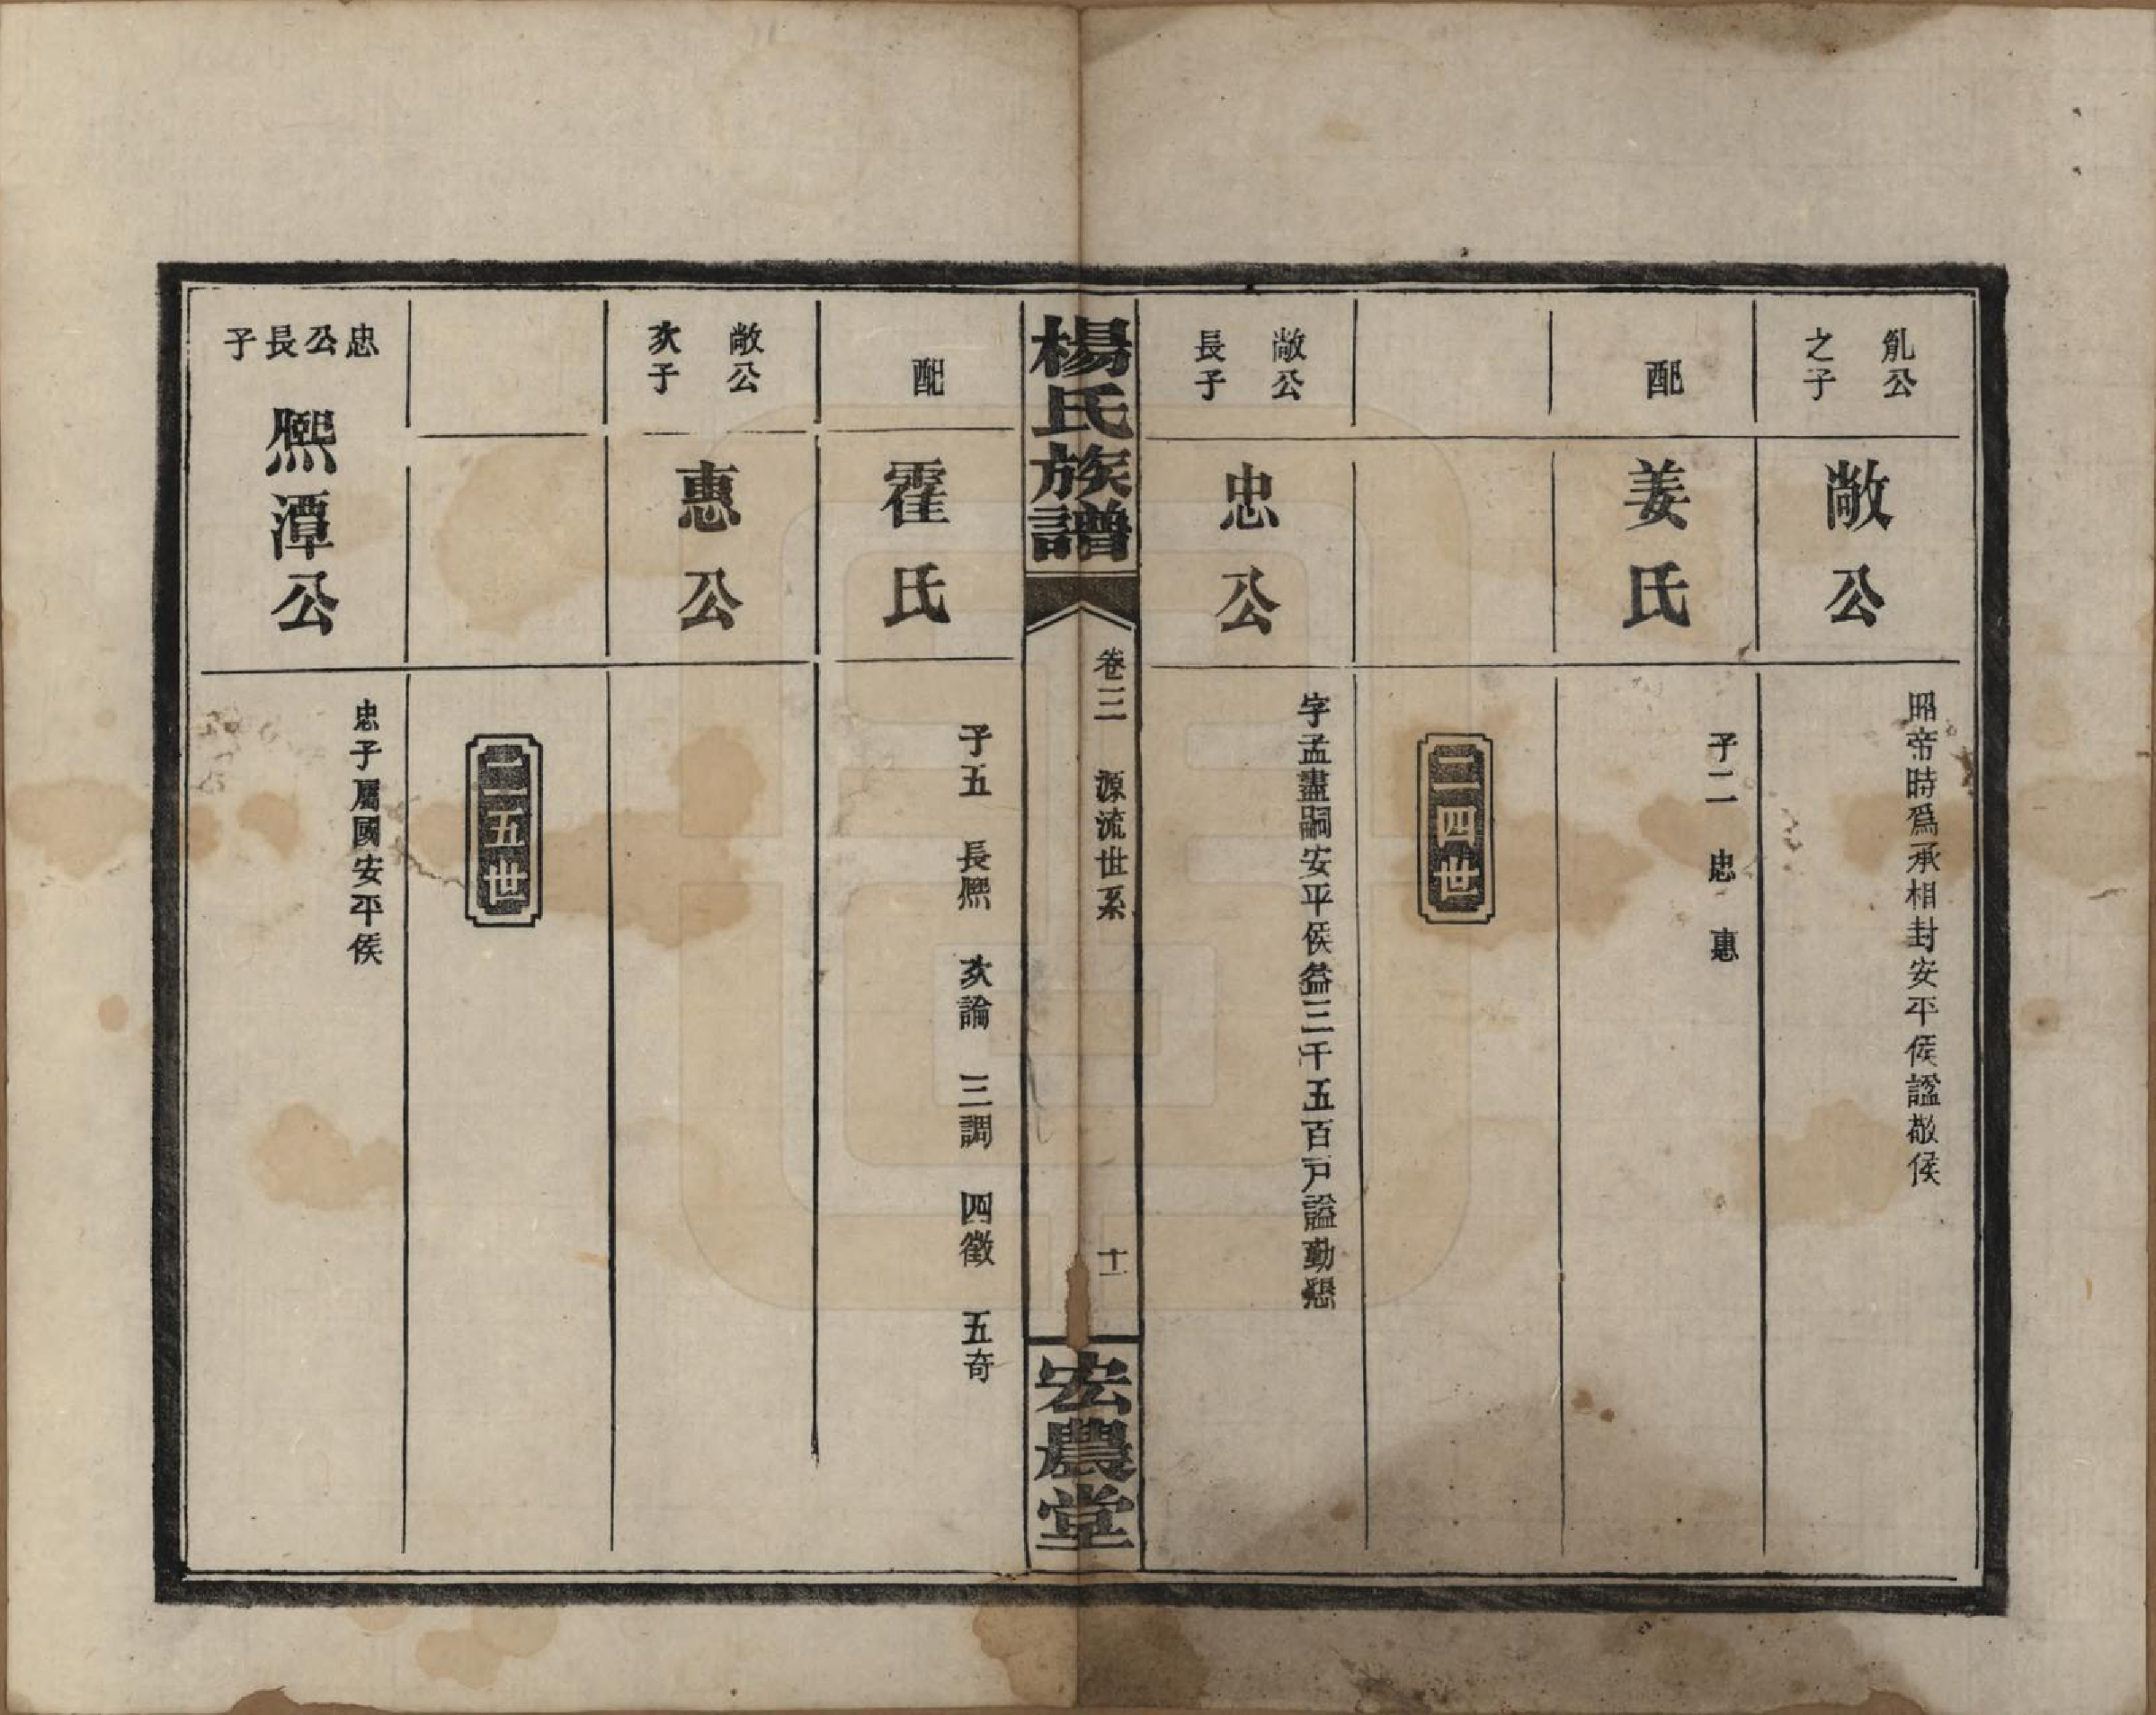 㲋公
之子
敞公
昭帝時爲承相封安平侯諡敬侯
配
姜氏
子二　忠　惠
二四世
敞公
長子
忠公
字孟盡嗣安平侯益三千五百戸諡勤懇
楊氏族譜
卷三　源流世系
十一
宏農堂
配
霍氏
子五　長熈　次論　三調　四徵　五奇
敞公
次子
惠公
二五世
忠公長子
熈潭公
忠子屬國安平侯